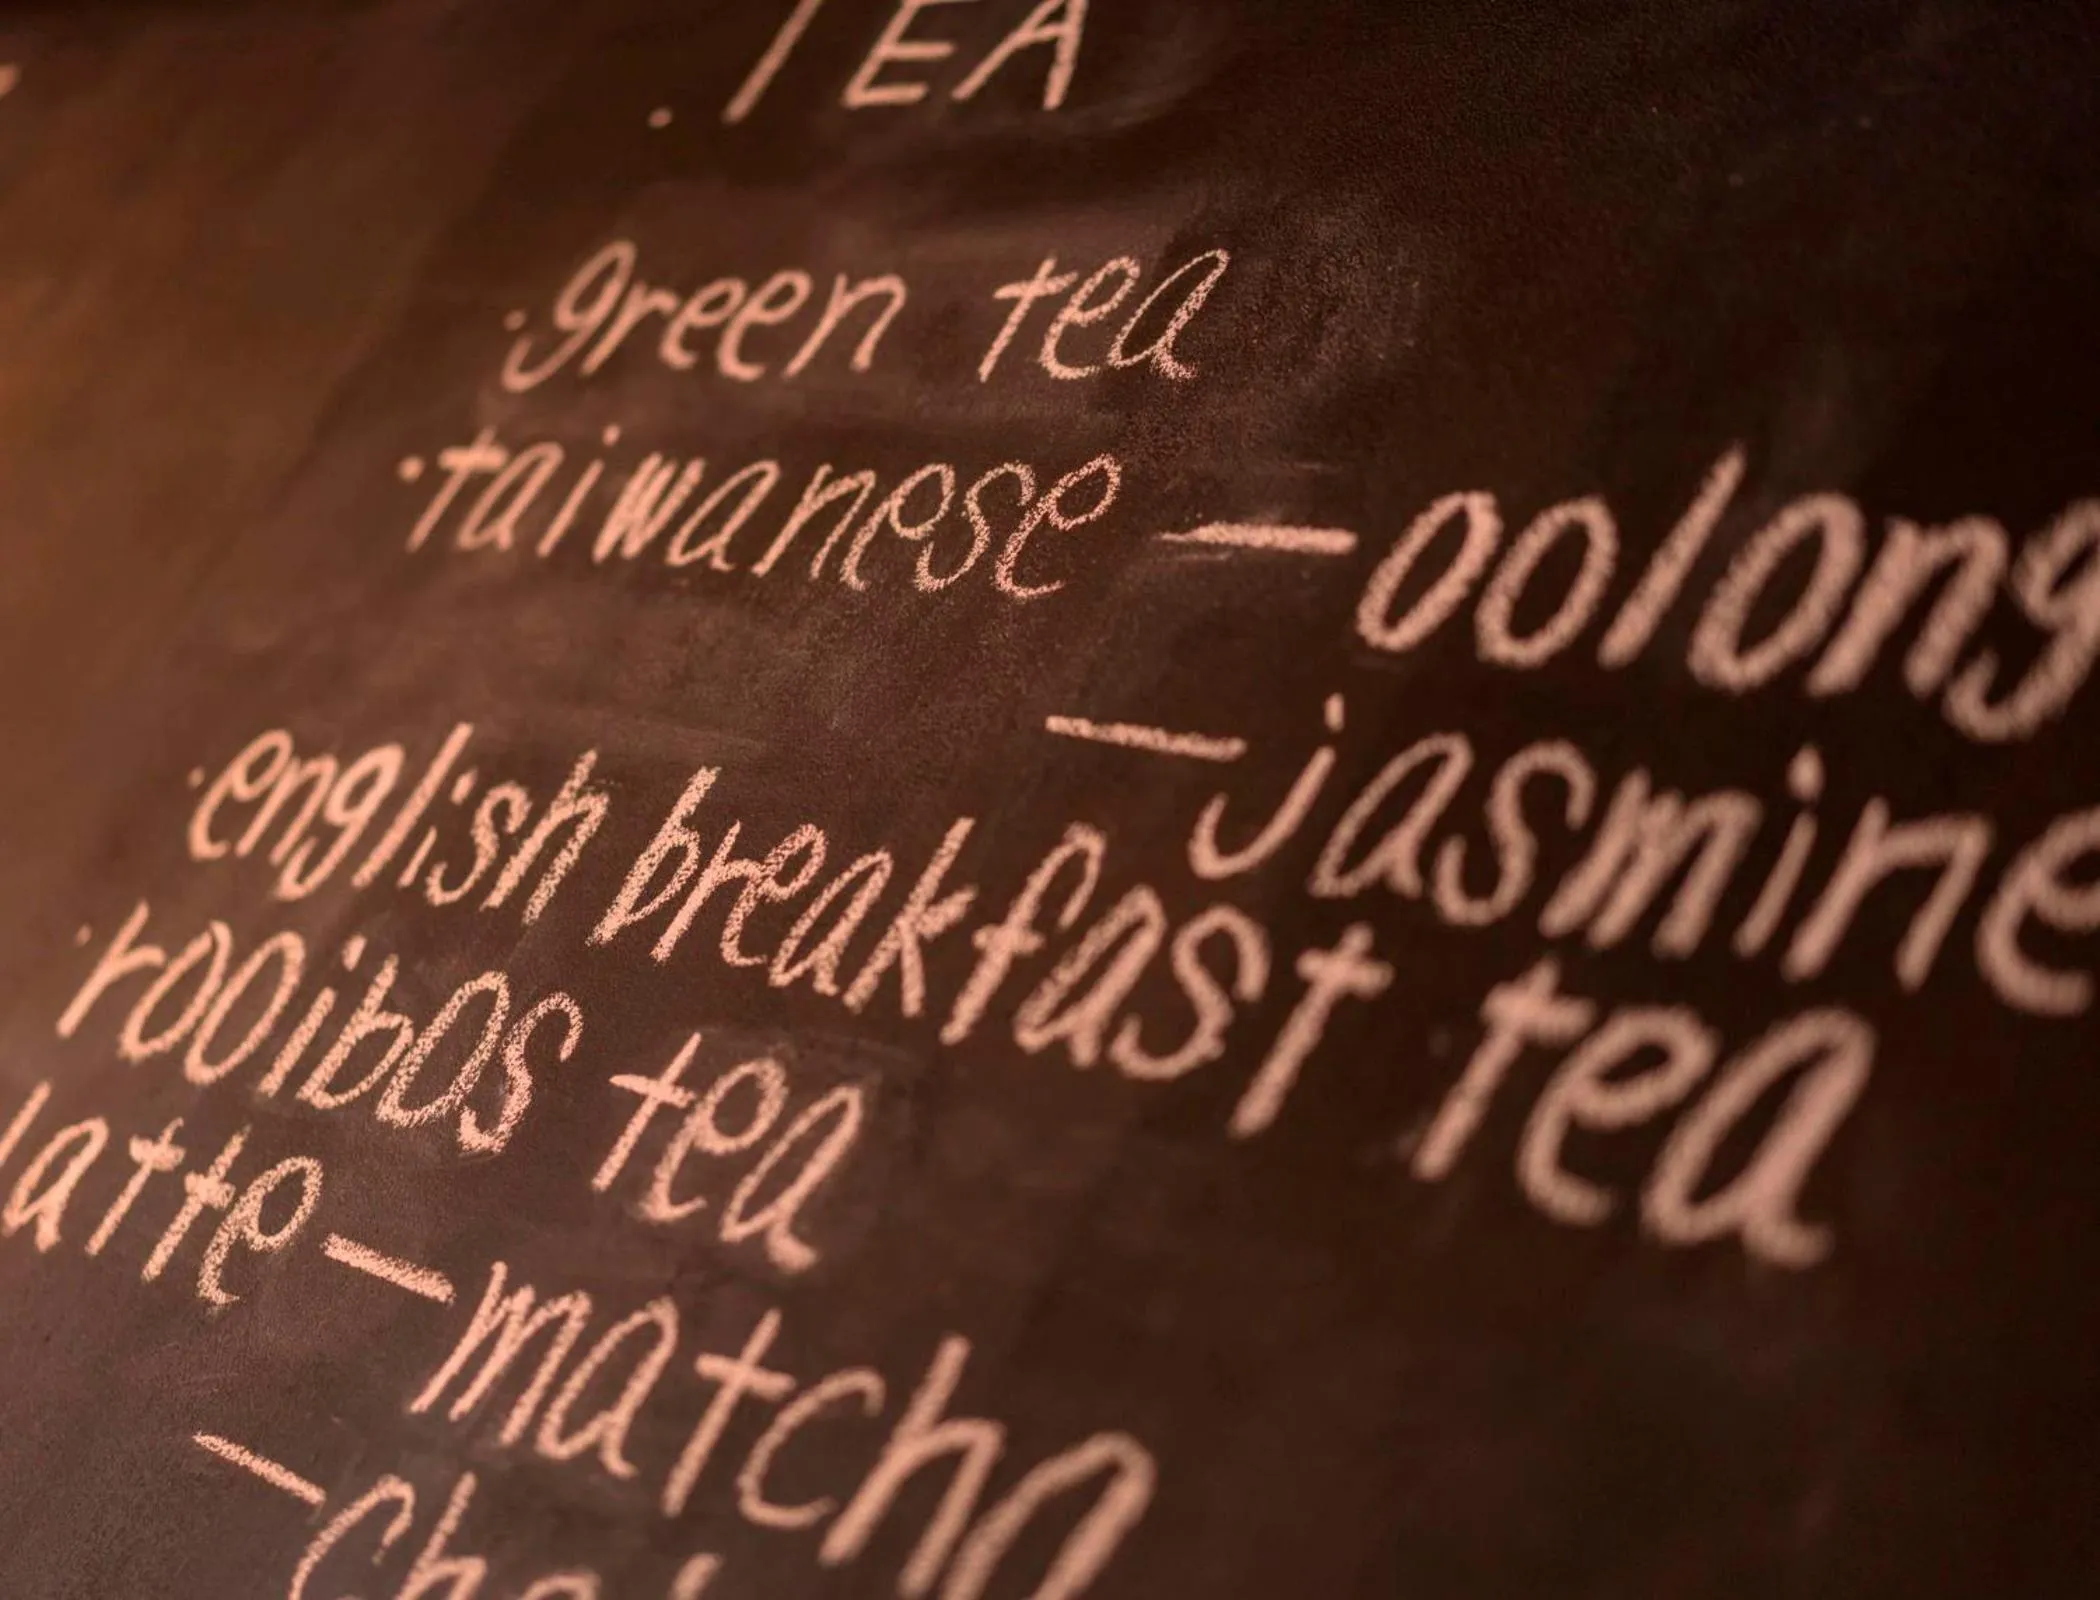 . TEA
· green tea
· taiwanese — oolong
— jasmine
· english breakfast tea
· rooibos tea
latte — matcha
— chai